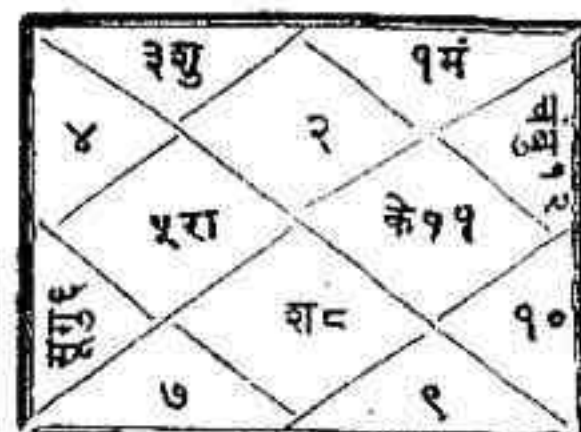 ३शु १मं
४ २ १२
५रा के११
सूगु६ श८ १०
७ ९